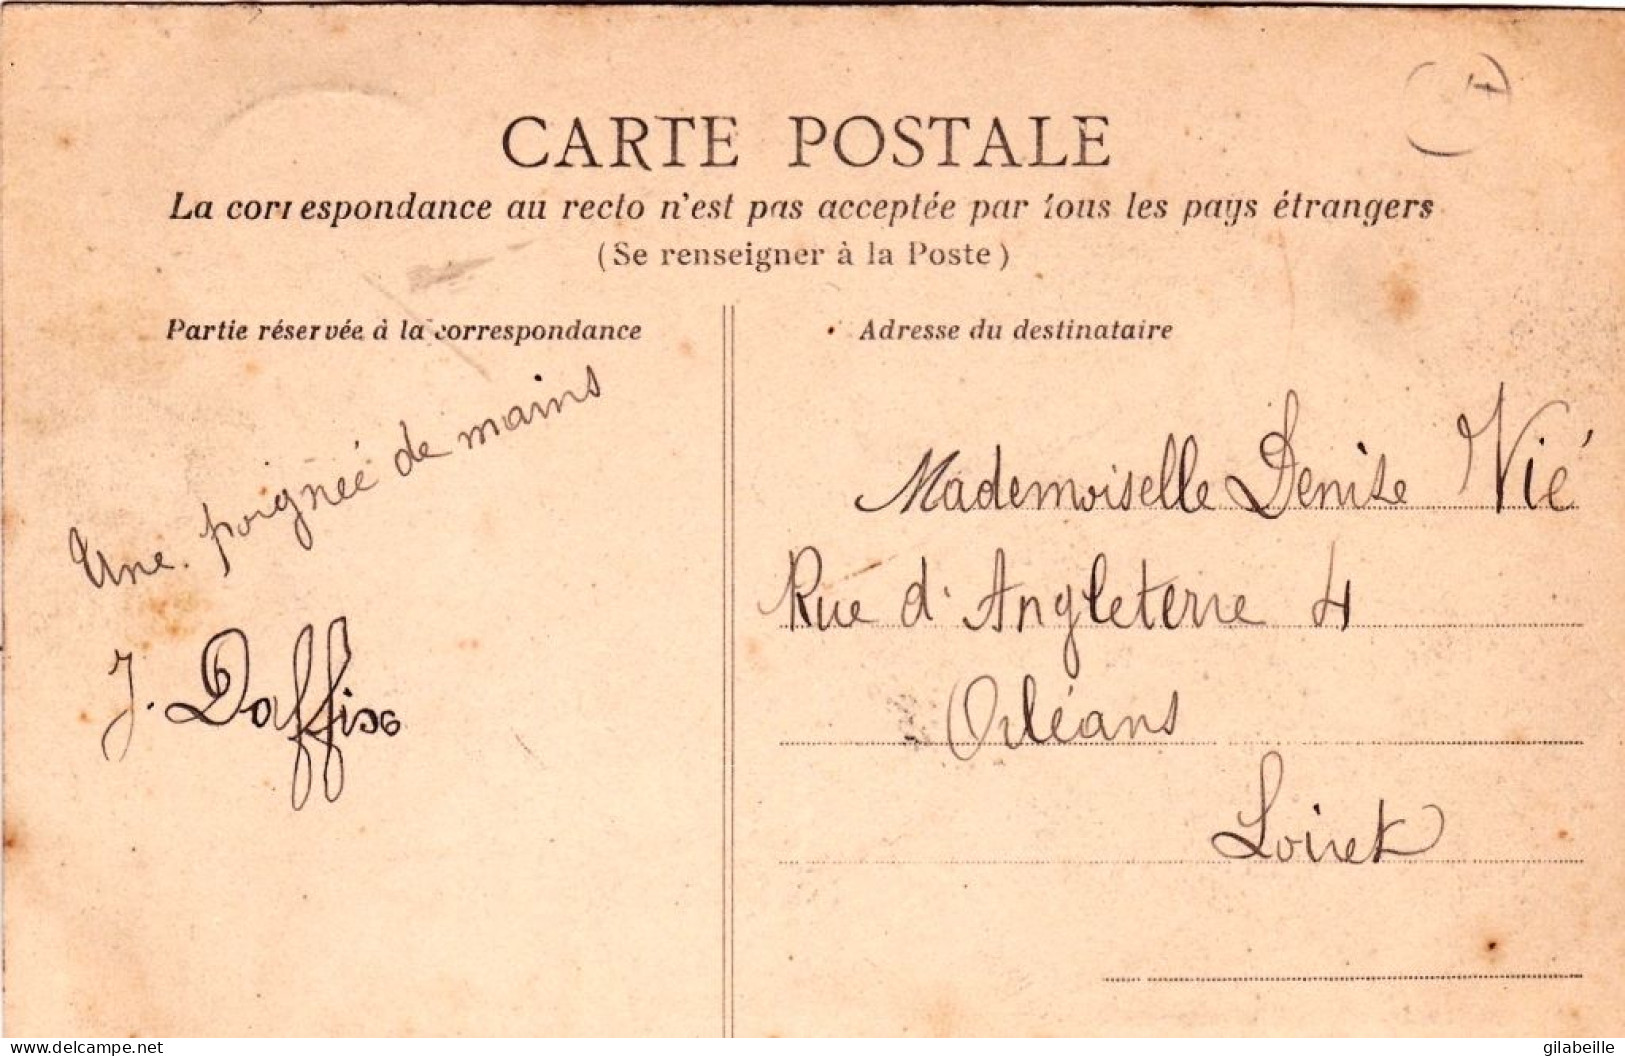 CARTE POSTALE
La correspondance au recto n'est pas acceptée par tous les pays étrangers
(Se renseigner à la Poste)
Partie réservée à la correspondance
Une poignée de mains
J. Daffix
Adresse du destinataire
Mademoiselle Denise Vié
Rue d'Angleterre 4
Orléans
Loiret
www.delcampe.net
gilabeille